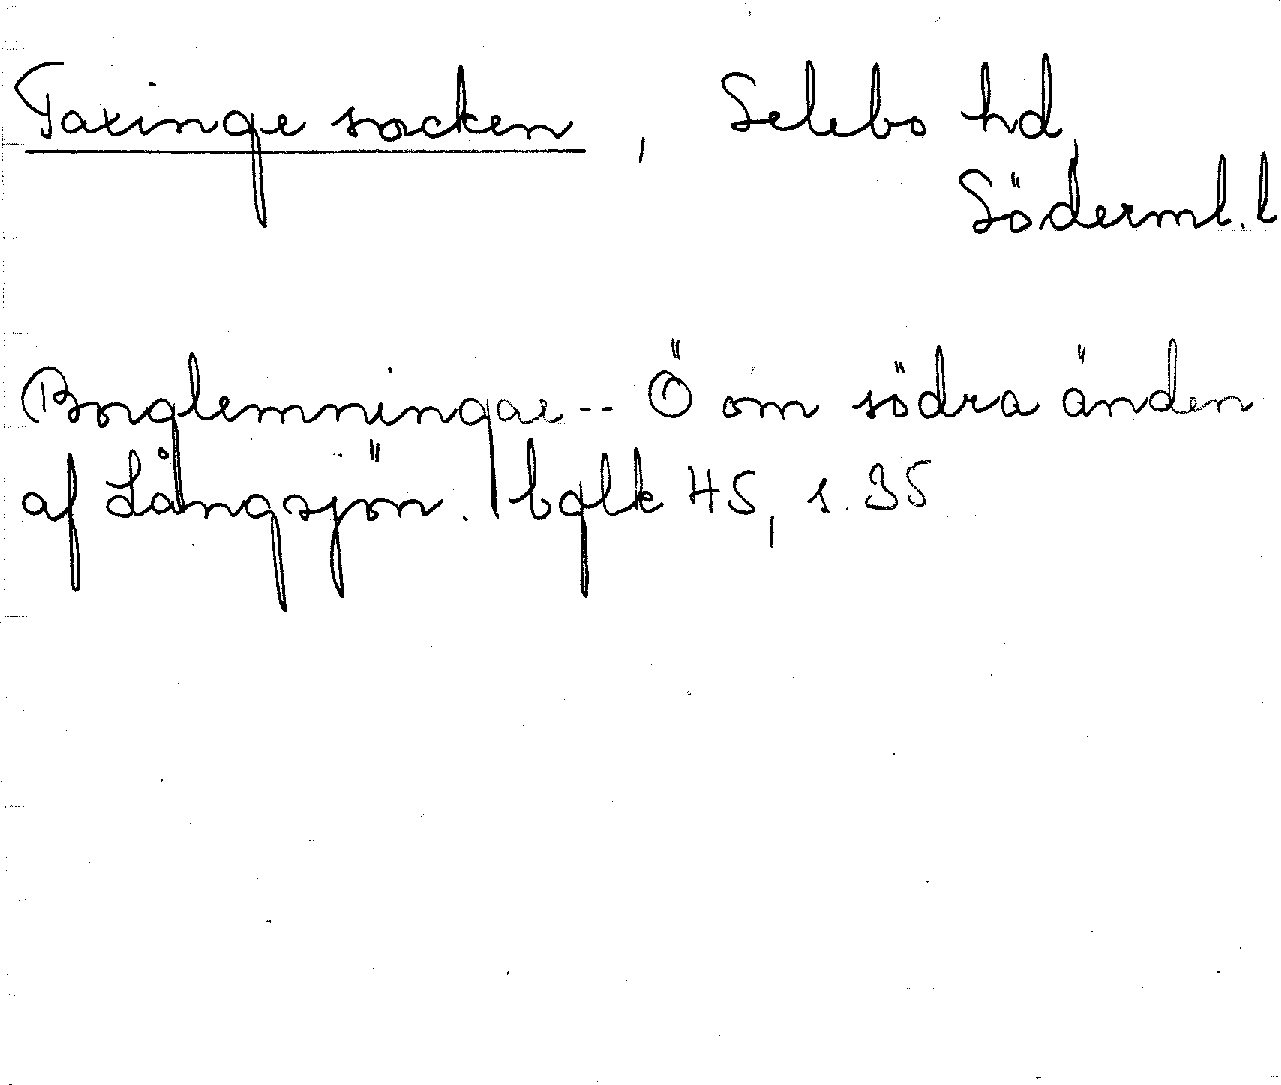 Taxinge socken, Selebo hd,
Söderml. l
Borglemningar -- Ö om södra änden
af Långsjön. bglk 45, s. 35